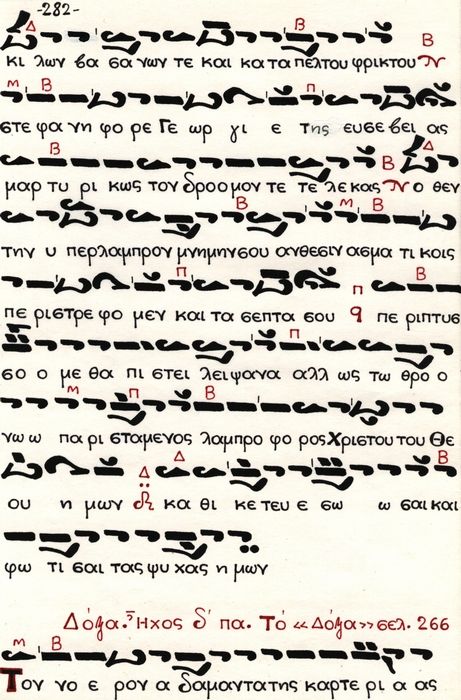 -282-
κι λων βα σα νων τε και κα τα πελτου φρικτου
στε φα νη φο ρε Γε ωρ γι ε της ευσε βει ας
μαρ τυ ρι κως τον δροομον τε τε λε κας ο θεν
την υ περλαμπρον μνημην σου ανθεσιν ασμα τι κοις
πε ριστρε φο μεν και τα σεπτα σου πε ριπτυσ
σο ο με θα πι στει λειψανα αλλ ως τω θρο ο
νω ω πα ρι σταμενος λαμπρο φο ρος Χριστου του Θε
ου η μων κα θι κε τευ ε σω ω σαι και
φω τι σαι τας ψυ χας η μων
Δόξα. Ἦχος δ΄ πα. Τό «Δόξα» σελ. 266
Τον νο ε ρον α δαμαντα της καρτε ρι α ας